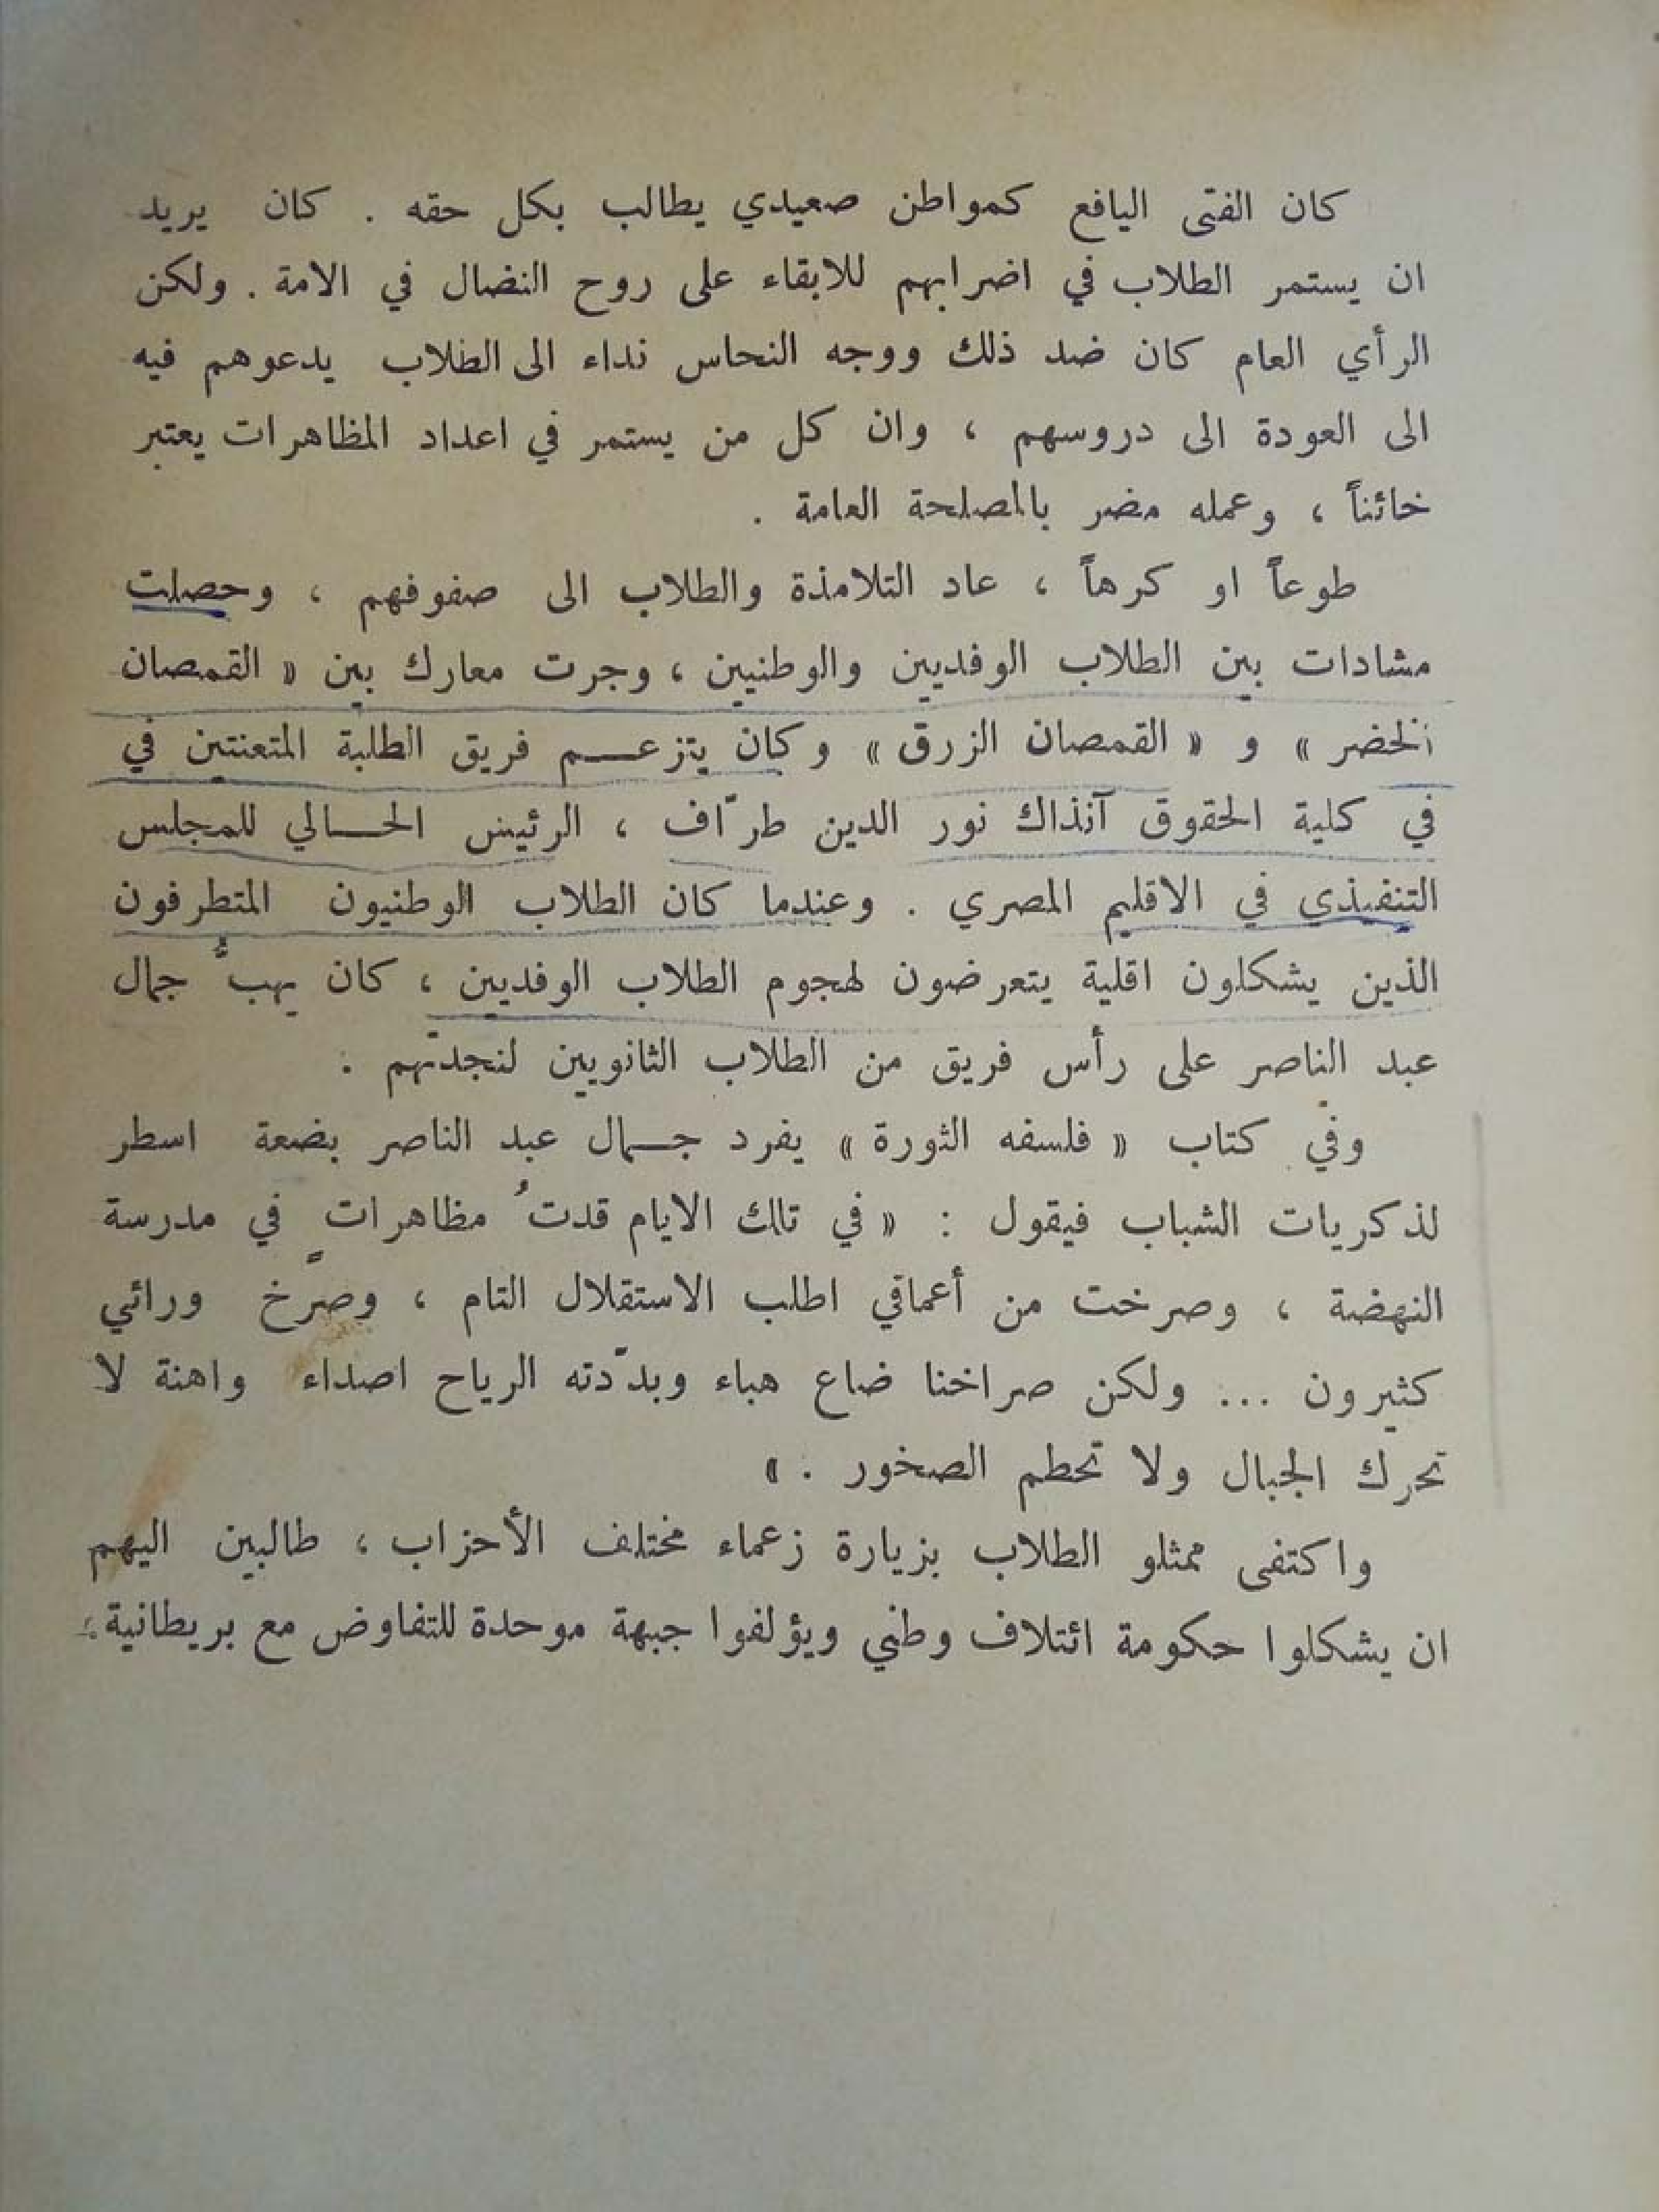 كان الفتى اليافع كمواطن صعيدي يطالب بكل حقه . كان يريد
ان يستمر الطلاب في اضرابهم للابقاء على روح النضال في الامة . ولكن
الرأي العام كان ضد ذلك ووجه النحاس نداء الى الطلاب يدعوهم فيه
الى العودة الى دروسهم ، وان كل من يستمر في اعداد المظاهرات يعتبر
خائناً ، وعمله مضر بالمصلحة العامة .
طوعاً او كرهاً ، عاد التلامذة والطلاب الى صفوفهم ، وحصلت
مشادات بين الطلاب الوفديين والوطنيين ، وجرت معارك بين « القمصان
الخضر » و « القمصان الزرق » وكان يتزعـــم فريق الطلبة المتعنتين في
في كلية الحقوق آنذاك نور الدين طرّاف ، الرئيس الحـــالي للمجلس
التنفيذي في الاقليم المصري . وعندما كان الطلاب الوطنيون المتطرفون
الذين يشكلون اقلية يتعرضون لهجوم الطلاب الوفديين ، كان يهبُّ جمال
عبد الناصر على رأس فريق من الطلاب الثانويين لنجدتهم .
وفي كتاب « فلسفه الثورة » يفرد جـــمال عبد الناصر بضعة اسطر
لذكريات الشباب فيقول : « في تلك الايام قدتُ مظاهراتٍ في مدرسة
النهضة ، وصرخت من أعماقي اطلب الاستقلال التام ، وصرَخ ورائي
كثيرون ... ولكن صراخنا ضاع هباء وبدّدته الرياح اصداء واهنة لا
تحرك الجبال ولا تحطم الصخور . »
واكتفى ممثلو الطلاب بزيارة زعماء مختلف الأحزاب ، طالبين اليهم
ان يشكلوا حكومة ائتلاف وطني ويؤلفوا جبهة موحدة للتفاوض مع بريطانية ؛